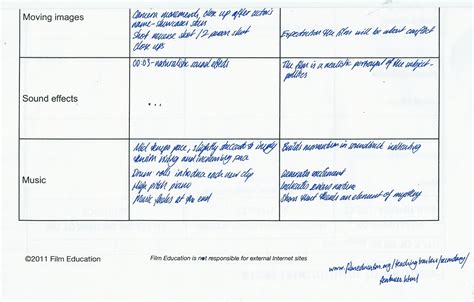 Moving images
Camera movements, close up after actor's
name - showcases stars
Short reverse shot / 2 person shot
Close ups
Expectation the film will be about conflict
Sound effects
00:03 - naturalistic sound effects
...
The film is a realistic portrayal of the subject -
politics
Music
Mid tempo pace, slightly discordant to imply
and increasing pace
Drum rolls introduce each new clip
High pitch piano
Music fades at the end
Builds momentum in soundtrack indicating
Generates excitement
Indicates serious nature
Show that there's an element of mystery
©2011 Film Education
Film Education is not responsible for external Internet sites
www.filmeducation.org/teachingtrailers/secondary/